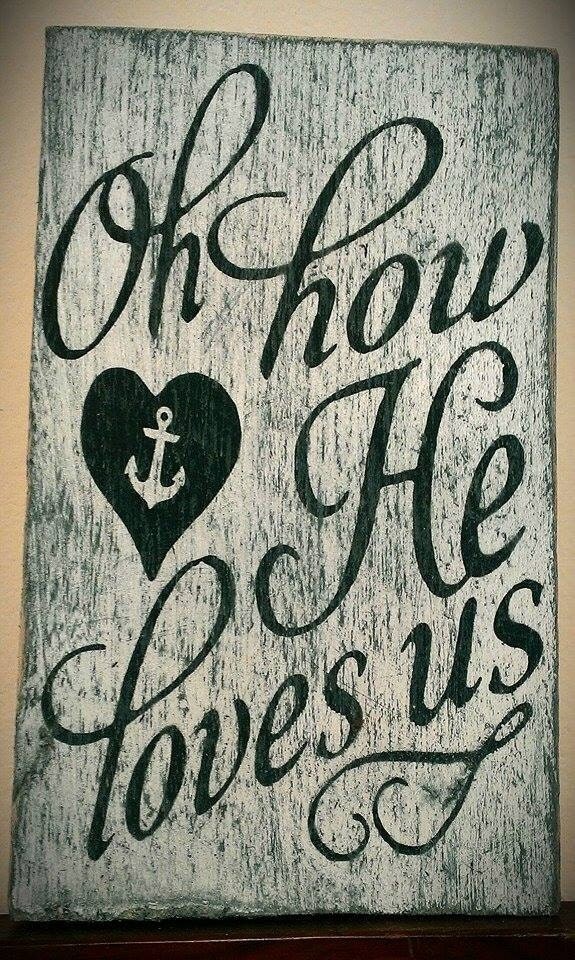 Oh how
He
loves us